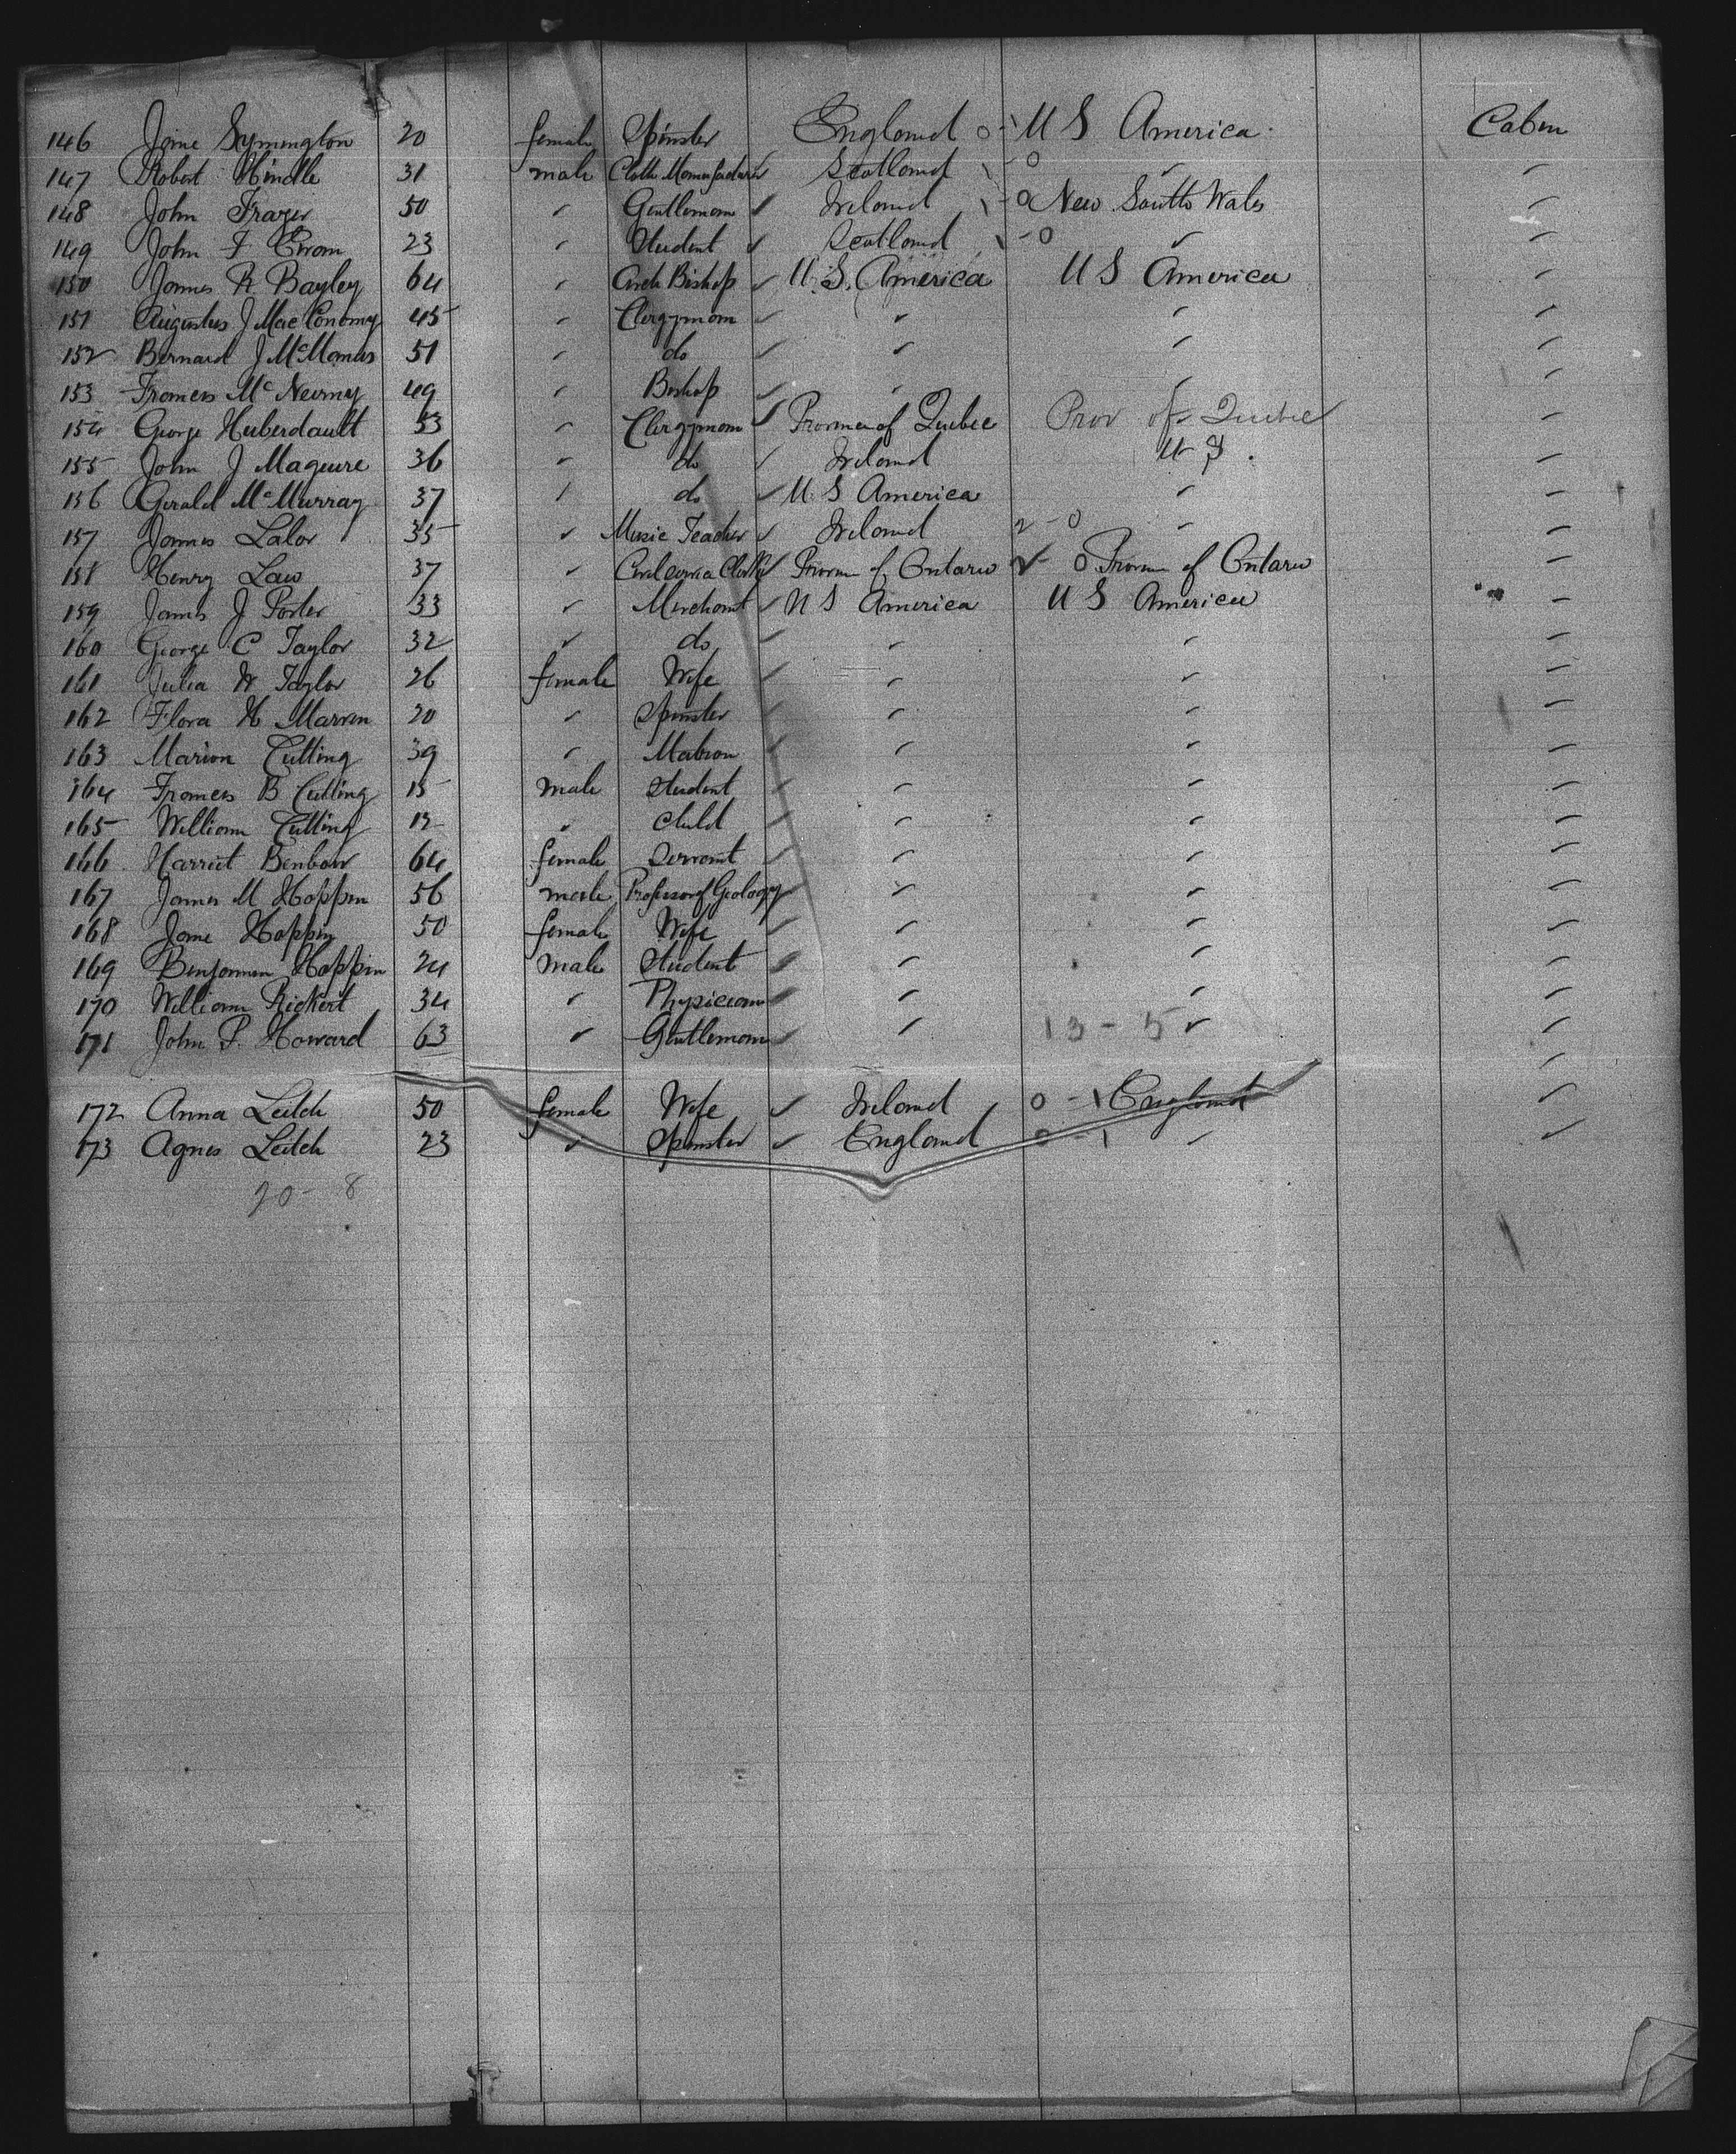 146 Jane Symington 20 female Spinster England 0 - 1 U S America Cabin
147 Robert Hindle 31 male Cloth Manufacturer ✓ Scotland \ - 0 " "
148 John Frazer 50 " Gentleman ✓ Ireland \ - 0 New South Wales "
149 John F 23 " Student ✓ Scotland \ - 0 " "
150 James R Bayley 64 " Arch Bishop ✓ U. S. America U S America "
151 Augustus J MacConomy 45 " Clergyman ✓ " " "
152 Bernard J McManus 51 " do ✓ " " "
153 Francis McNeirny 49 " Bishop ✓ " " "
154 George Huberdault 53 " Clergyman ✓ Province of Quebec Prov of Quebec "
155 John J Maguire 36 " do ✓ Ireland U S. "
156 Gerald McMurray 37 " do ✓ U. S America " "
157 James Lalor 35 " Music Teacher ✓ Ireland 2 - 0 " "
158 Henry Law 37 " Civil service Clerk ✓ Provin of Ontario ✓ 0 Provin of Ontario "
159 James J Porter 33 " Merchant ✓ U S America U S America "
160 George C Taylor 32 " do ✓ " " "
161 Julia W Taylor 26 female Wife ✓ " " "
162 Flora H 20 " Spinster ✓ " " "
163 Marion Cutting 39 " Matron ✓ " " "
164 Francis B Cutting 15 male Student ✓ " " "
165 William Cutting 12 " Child ✓ " " "
166 Harriet Benbow 64 female Servant ✓ " " "
167 James M Hoppin 56 male Professor of Geology ✓ " " "
168 Jane Hoppin 50 female Wife ✓ " " "
169 Benjamin Hoppin 24 male Student ✓ " " "
170 William Rickert 34 " Physician ✓ " " "
171 John P. Howard 63 " Gentleman ✓ " 13 - 5 " "
172 Anna Leitch 50 female Wife ✓ Ireland 0 - 1 England "
173 Agnes Leitch 23 " Spinster ✓ England 0 - 1 " "
20 - 8